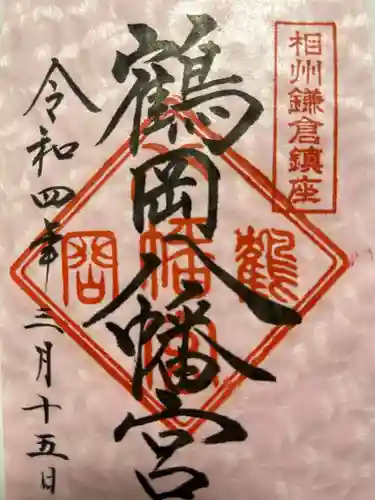 相州鎌倉鎮座
鶴岡八幡宮
令和四年三月十五日